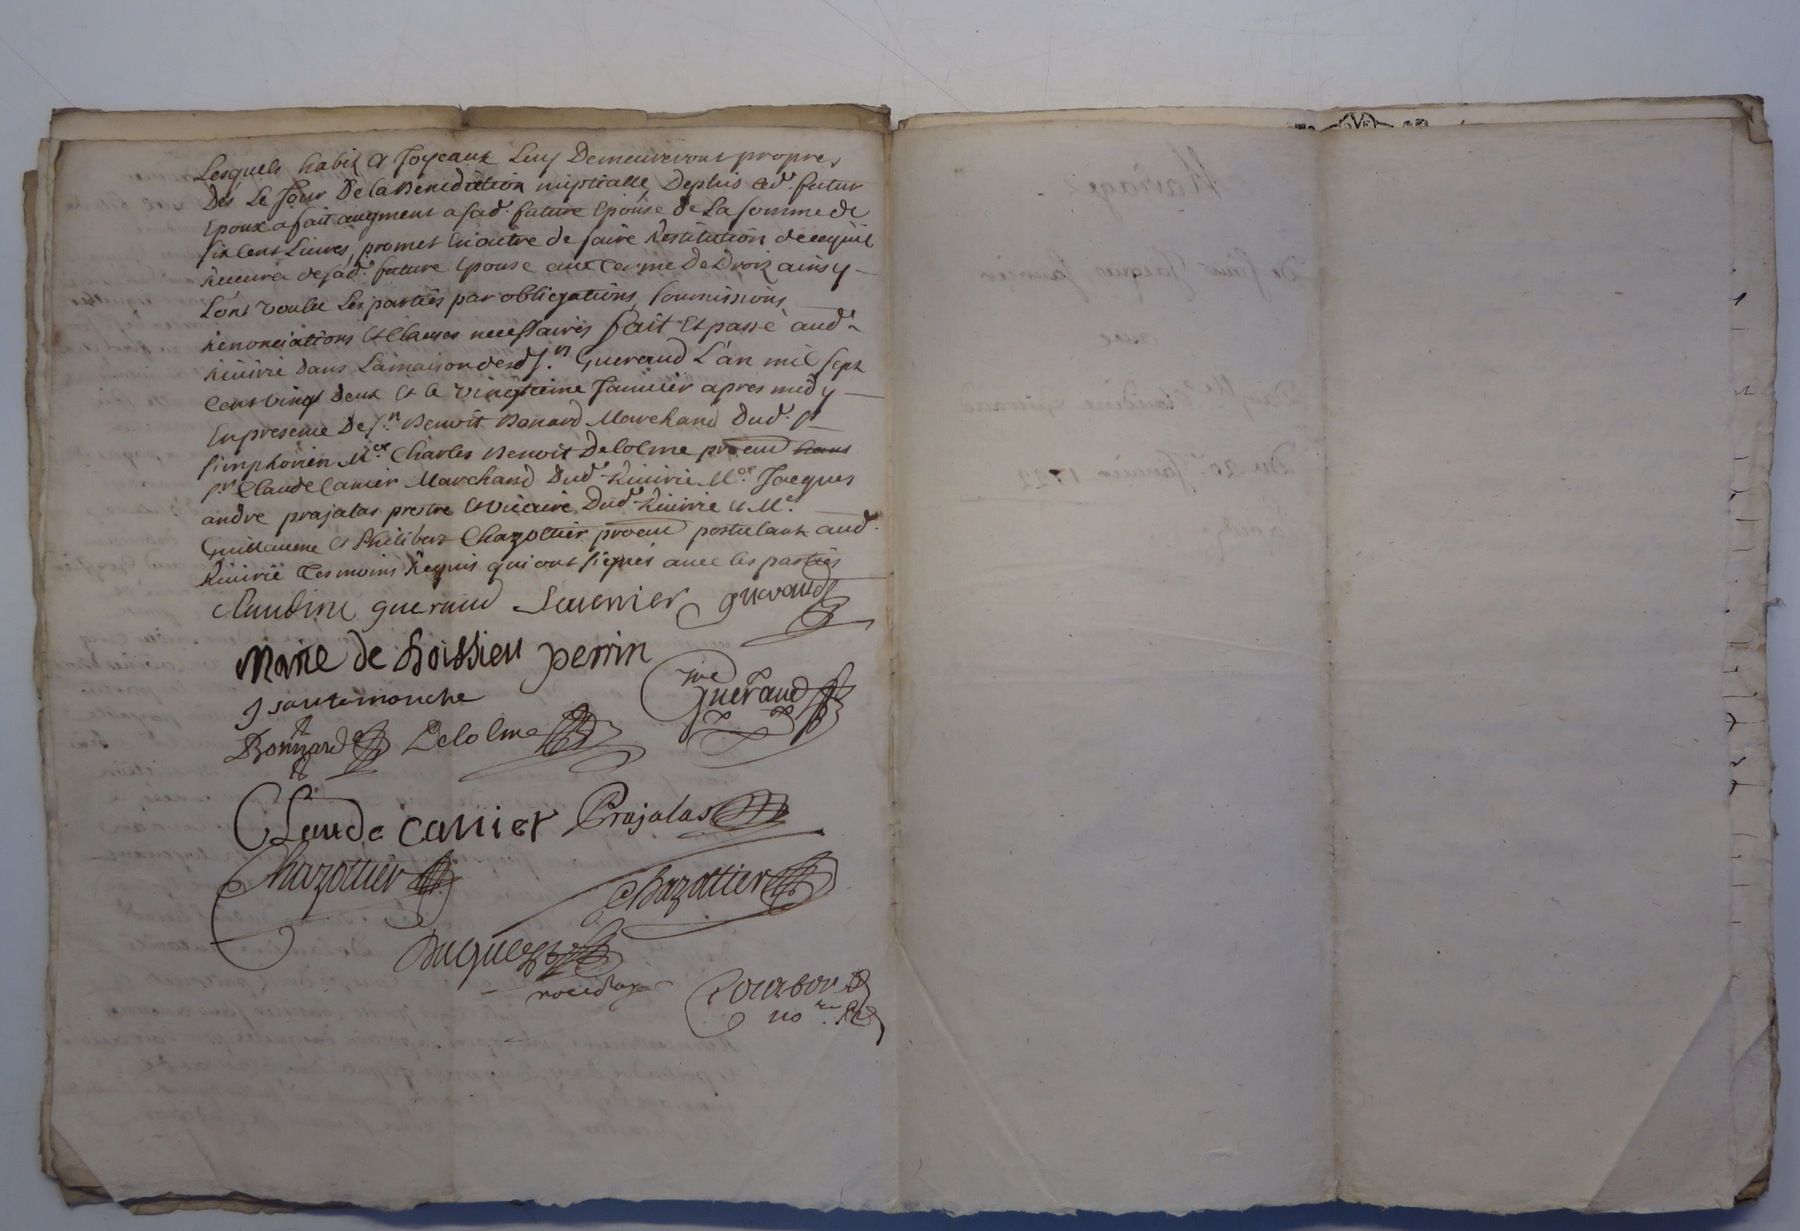 Lesquels habitz & Joyeaux Luy Demeureront propres
Des Le Jour De la Benediction nuptialle, Deplus led. futur
Epoux a fait augment a sad. future Epouse de La somme de
six Cent Livres, promet En outre de faire Restitution de ce quil
Recevra de sad. future Epouse au terme De Droit ainsy
Lont voulu Les parties par obligations, soumissions
Renonciations Et Clauses necessaires fait Et passé aud.
Riverie dans La maison dud. Sr. Gueraud L'an mil sept
Cent vingt deux Et le vingtieme Janvier apres midy
En presence De Sr. Benoit Bonard Marchand Dud. St
simphorien Me. Charles Benoit Delolme procur
sr Claude Canier Marchand Dud. Riverie Me. Jacques
andre prajalas prestre & vicaire Dud. Riverie & Me.
Guillaume & Philibert Chazottier procur postulant aud.
Riverie Tesmoins Requis qui ont signés avec les parties
Claudine gueraud Gueraud
Marie de boissieu perrin
J santemouche Gueraud
Bonnard Delolme
Claude canier Prajalas
Chazottier Chazottier
Duguet
Courbon
nore
Mariage
De sieur Jacques
avec
Du 20e Janvier 1722